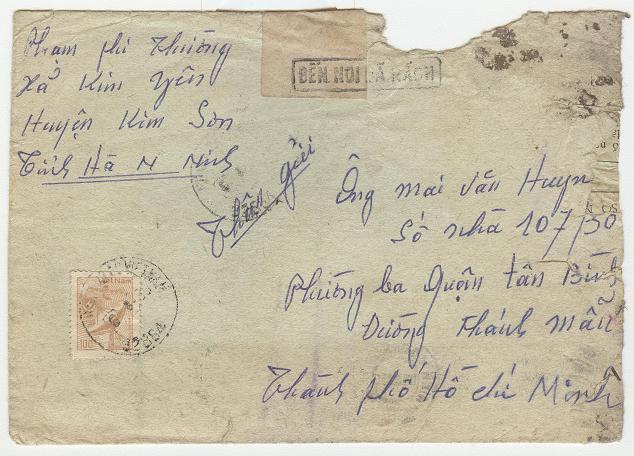 Phạm phi Thường
Xả Kim Yên
Huyện Kim Sơn
Tỉnh Hà N Ninh
ĐẾN NƠI ĐÃ RÁCH
Thân gửi
Ông mai Văn Huyn
Số nhà 107/30
Phường ba Quận tân Bình
Dường Thánh mẫu
Thành phố Hồ chí Minh
VIETNAM
100